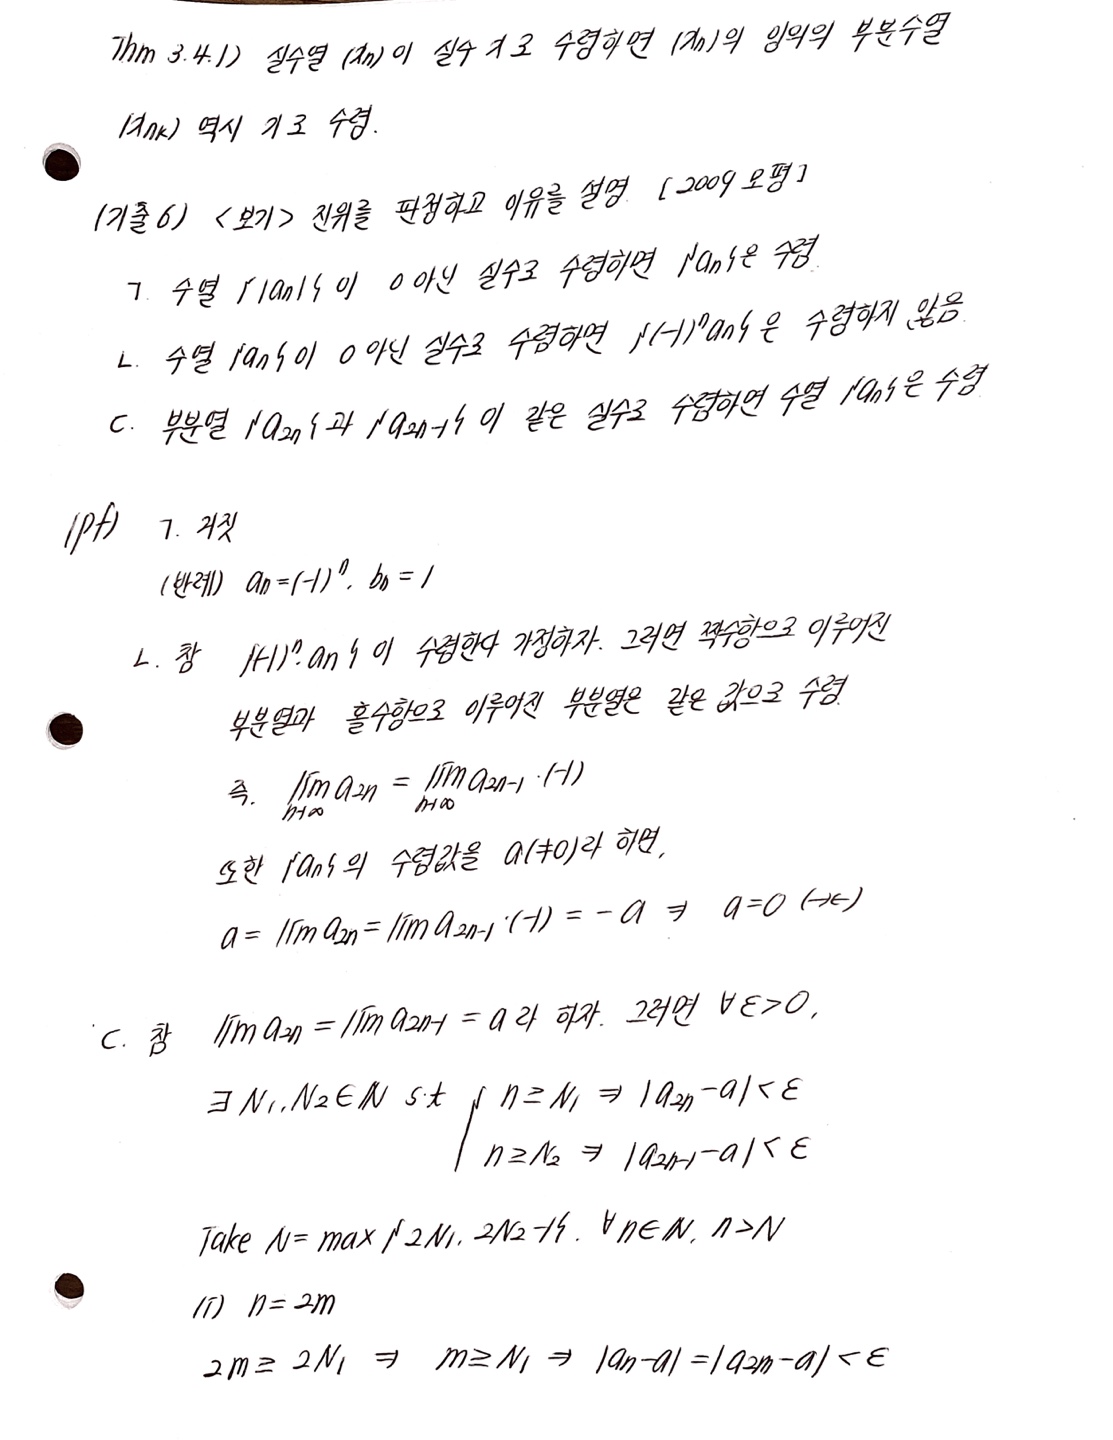 Thm 3.4.1) 실수열 (xn)이 실수 x로 수렴하면 (xn)의 임의의 부분수열
(xnk) 역시 x로 수렴.
(기출6) <보기> 진위를 판정하고 이유를 설명 [2009 모평]
ㄱ. 수열 {|an|}이 0 아닌 실수로 수렴하면 {an}은 수렴.
ㄴ. 수열 {an}이 0 아닌 실수로 수렴하면 {(-1)ⁿan}은 수렴하지 않음.
ㄷ. 부분열 {a2n}과 {a2n-1}이 같은 실수로 수렴하면 수열 {an}은 수렴
(pf) ㄱ. 거짓
(반례) an=(-1)ⁿ. bn=1
ㄴ. 참 {(-1)ⁿ·an}이 수렴한다 가정하자. 그러면 짝수항으로 이루어진
부분열과 홀수항으로 이루어진 부분열은 같은 값으로 수렴.
즉. lim a2n = lim a2n-1 ·(-1)
n→∞ n→∞
또한 {an}의 수렴값을 a(≠0)라 하면,
a = lim a2n = lim a2n-1·(-1) = -a ⇒ a=0 (→←)
ㄷ. 참 lim a2n = lim a2n-1 = a라 하자. 그러면 ∀ε>0,
∃N1, N2∈ℕ s.t { n≥N1 ⇒ |a2n-a|<ε
n≥N2 ⇒ |a2n-1-a|<ε
Take N = max{2N1. 2N2-1}. ∀n∈ℕ, n>N
(i) n=2m
2m≥2N1 ⇒ m≥N1 ⇒ |an-a|=|a2m-a|<ε